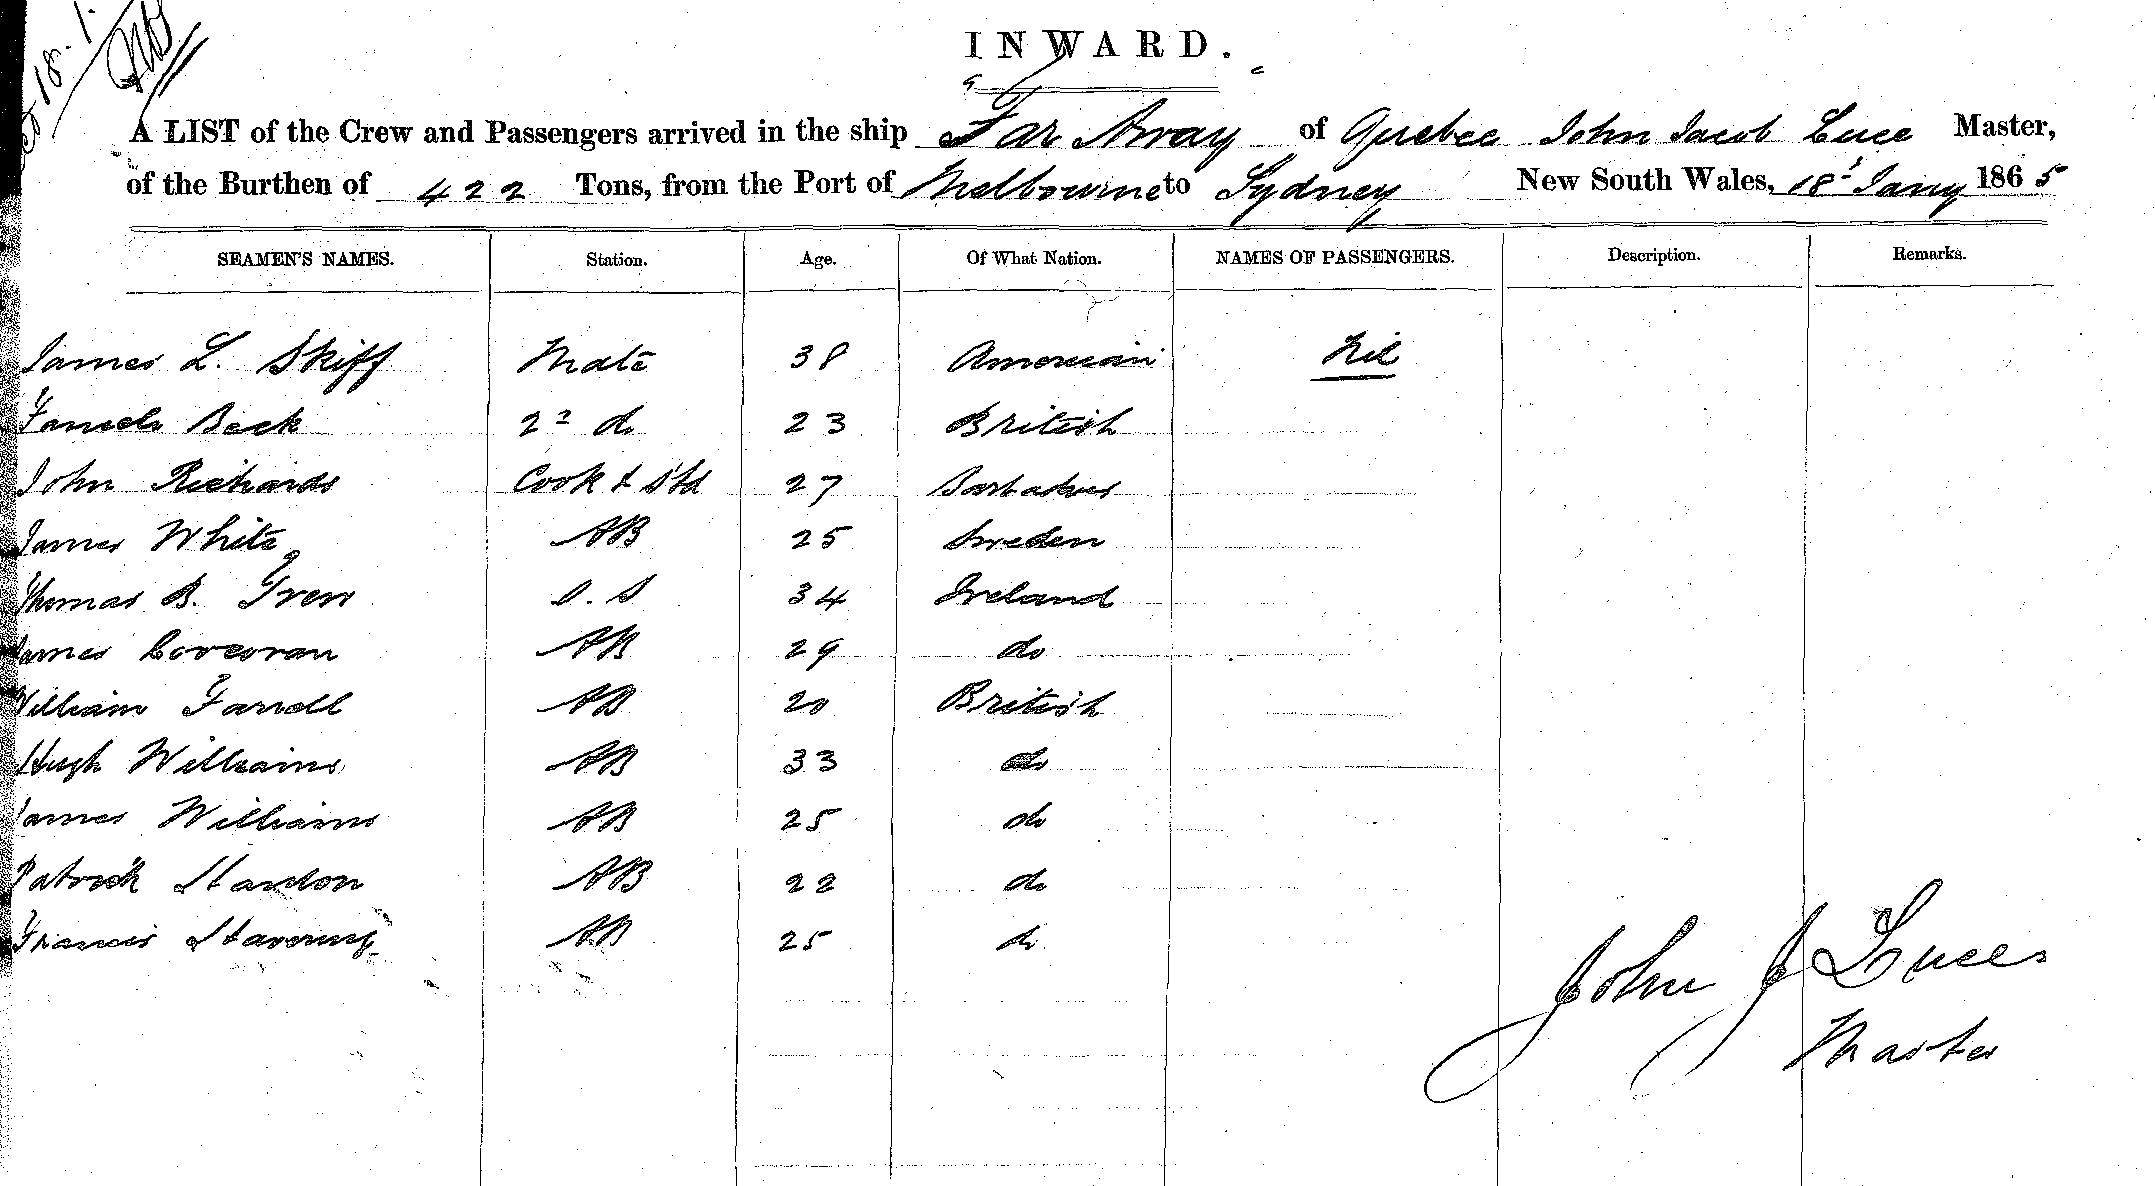 18.1.
INWARD.
A LIST of the Crew and Passengers arrived in the ship "Far Away" of Quebec John Jacob Luce Master,
of the Burthen of 422 Tons, from the Port of Melbourne to Sydney New South Wales, 18t Jany 1865
SEAMEN'S NAMES. Station. Age. Of What Nation. NAMES OF PASSENGERS. Description. Remarks.
James L. Skiff Mate 38 American Nil
Beck 2d do 23 British
John Richards Cook & Std 27 Barbadoes
James White AB 25 Sweden
Thomas B. O.S 34 Ireland
James Corcoran AB 29 do
William Farrell AB 20 British
Hugh Williams AB 33 do
James Williams AB 25 do
Patrick AB 22 do
Francis AB 25 do
John J Luce
Master